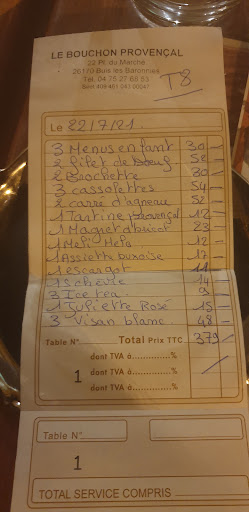 LE BOUCHON PROVENÇAL
22 Pl. du Marché
26170 Buis les Baronnies
Tél. 04 75 27 68 53
T8
Le 22/7/21.
3 Menus enfant 30 -
2 filet de Boeuf 52 -
2 Brochette 30 -
3 cassolettes 54 -
2 carré d'agneau 52 -
1 Tartine provençal 12 -
1 Magret abricot 23 -
1 Meli Melo 12 -
1 Assiette buxoise 17 -
1 escargot 11 -
1 S chèvre 14 -
3 Ice tea 9 -
1 Juliette Rosé 15 -
3 Visan blanc 48 -
Table N° Total Prix TTC 379
dont TVA à..............%
1 dont TVA à..............%
dont TVA à..............%
Table N°
1
TOTAL SERVICE COMPRIS